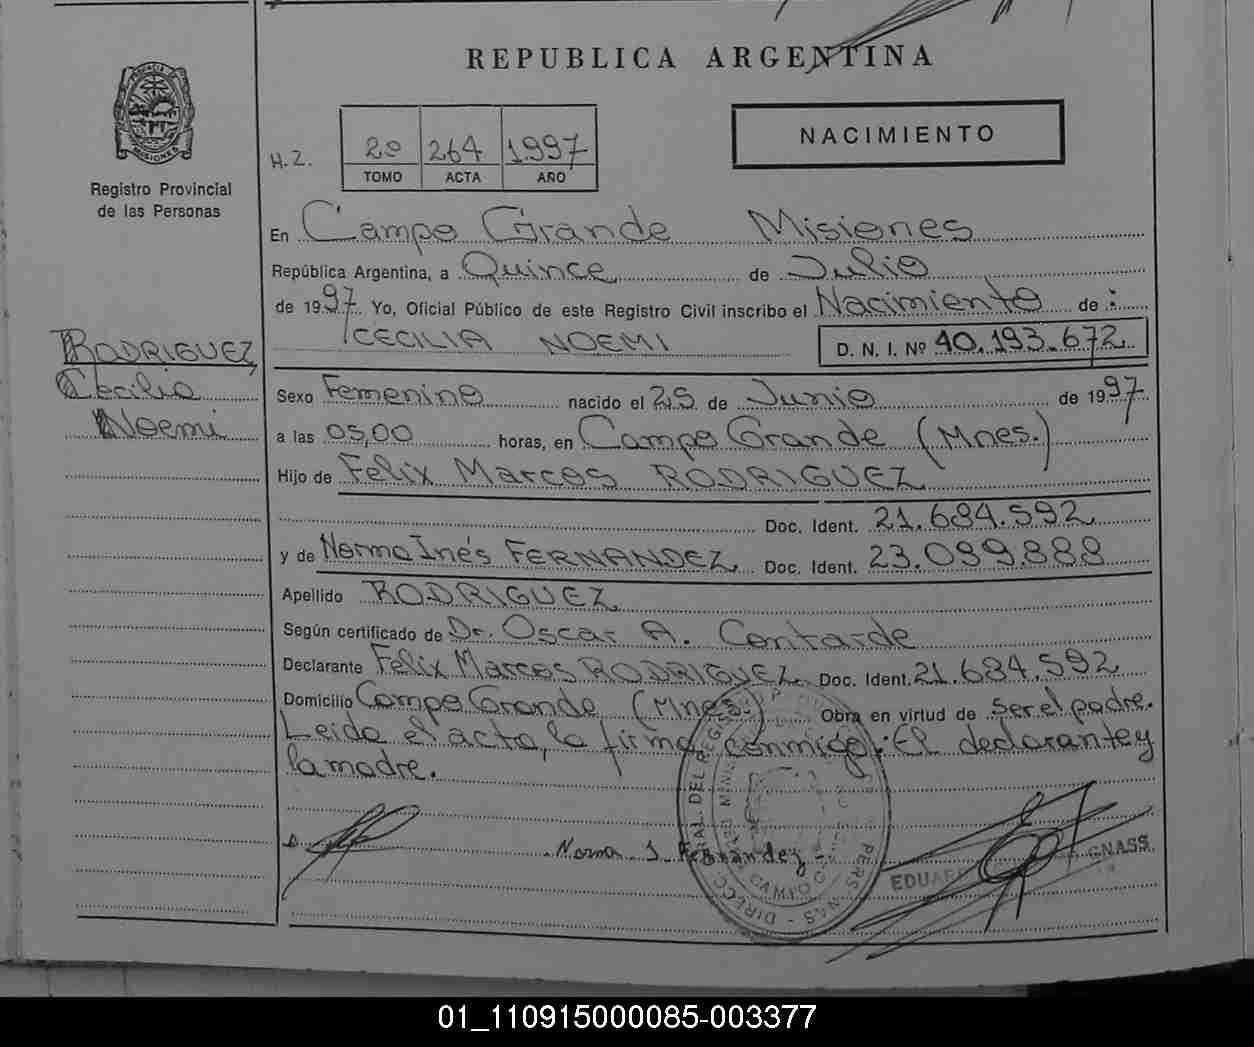 REPUBLICA ARGENTINA
PROVINCIA DE
MISIONES
Registro Provincial
de las Personas
H.Z.
2º 264 1997
TOMO ACTA AÑO
NACIMIENTO
En Campo Grande Misiones
República Argentina, a Quince de Julio
de 1997. Yo, Oficial Público de este Registro Civil inscribo el Nacimiento de :
CECILIA NOEMI D. N. I. Nº 40.193.672
RODRIGUEZ
Cecilia
Noemi
Sexo Femenino nacido el 25 de Junio de 1997
a las 05,00 horas, en Campo Grande (Mnes.)
Hijo de Felix Marcos RODRIGUEZ
Doc. Ident. 21.684.592
y de Norma Inés FERNANDEZ Doc. Ident. 23.099.888
Apellido RODRIGUEZ
Según certificado de Dr. Oscar A. Contarde
Declarante Felix Marcos RODRIGUEZ Doc. Ident. 21.684.592
Domicilio Campo Grande (Mnes.) Obra en virtud de ser el padre.
Leida el acta, la firma conmigo: El declarante y
la madre.
Norma I. Fernández
EDUAR GNASS
01_110915000085-003377